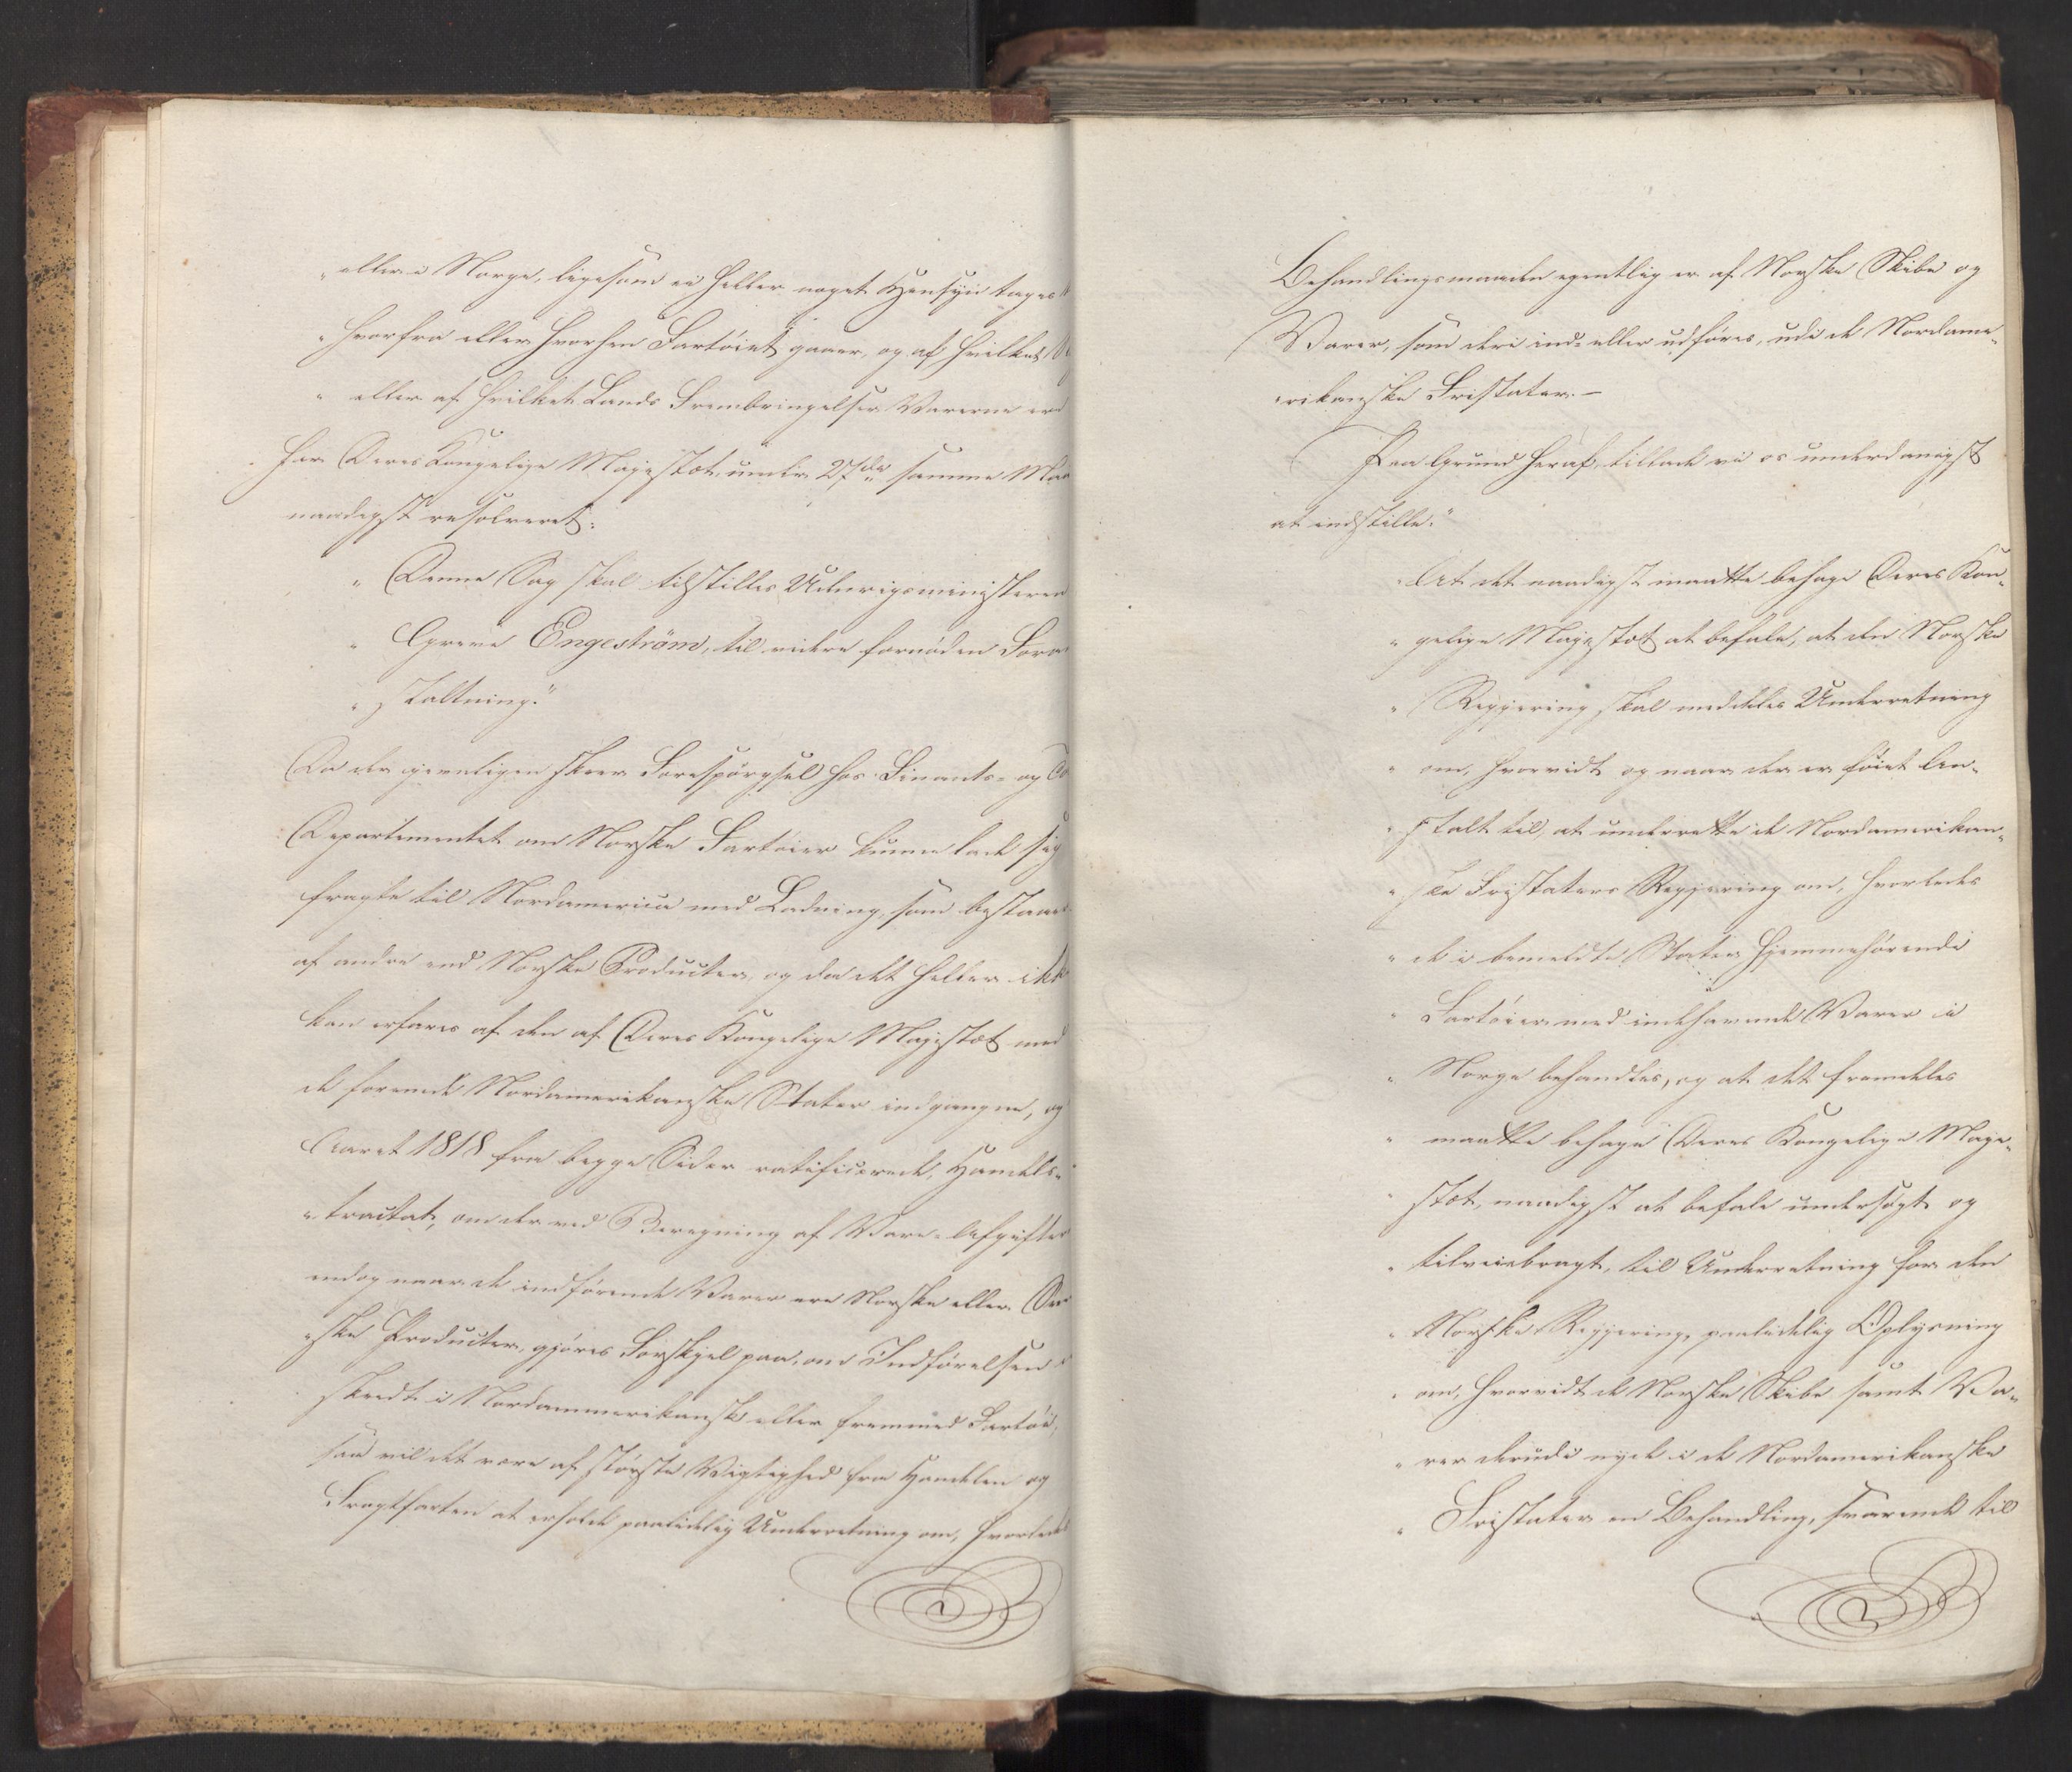 "eller i Norge, ligesom ei heller noget Hensyn tages
"hvorfra eller hvorhen Fartöiet gaaer, og af hvilket
" eller af hvilket Lands Frembringelser Varerne ere
har Deres Kongelige Majestæt, under 27de samme
naadigst resolveret:
" Denne Sag skal tilstilles Udenrigsministeren
" Greve Engeström, til videre fornöden Foran
"staltning."
Da der jevnligen skeer Forespörgsel hos Finants- og
Departementet om Norske Fartöier kunne lade sig
fragte til Nordamerica med Ladning, som bestaaer
af andre end Norske Producter, og da det heller ikke
kan erfares af den af Deres Kongelige Majestæt med
de forenede Nordamerikanske Stater indgangne, og
Aaret 1818 fra begge Sider ratificerede, Handels-
"tractat, om der ved Beregning af Vare-Afgifter
endog naar de indförende Varer ere Norske eller Sven
"ske Producter, gjöres Forskjel paa, om Indförelsen
skeedt i Nordammerikansk eller fremmed Fartöi,
saa vil det være af störste Vigtighed for Handelen og
Fragtfarten at erholde paalidelig Underretning om, hvorledes
Behandlingsmaaden egentlig er af Norske Skibe og
Varer, som deri ind- eller udföres, udi de Nordame-
"rikanske Fristater.-
Paa Grund heraf, tillade vi os underdanigst
at indstille:"
"At det naadigst maatte behage Deres Kon-
"gelige Majestæt at befale, at den Norske
" Regjering skal meddeles Underretning
" om, hvorvidt og naar der er föiet An-
"stalt til, at underrette de Nordamerikan-
"ske Fristaters Regjering om, hvorledes
" de i bemeldte Stater hjemmehörende
" Fartöier med indehavende Varer i
" Norge behandles, og at det fremdeles
" maatte behage Deres Kongelige Maje-
" stæt, naadigst at befale undersögt og
" tilveiebragt, til Underretning for den
" Norske Regjering, paalidelig Oplysning
" om, hvorvidt de Norske Skibe samt Va-
" rer derudi nyde i de Nordamerikanske
" Fristater en Behandling, svarende til